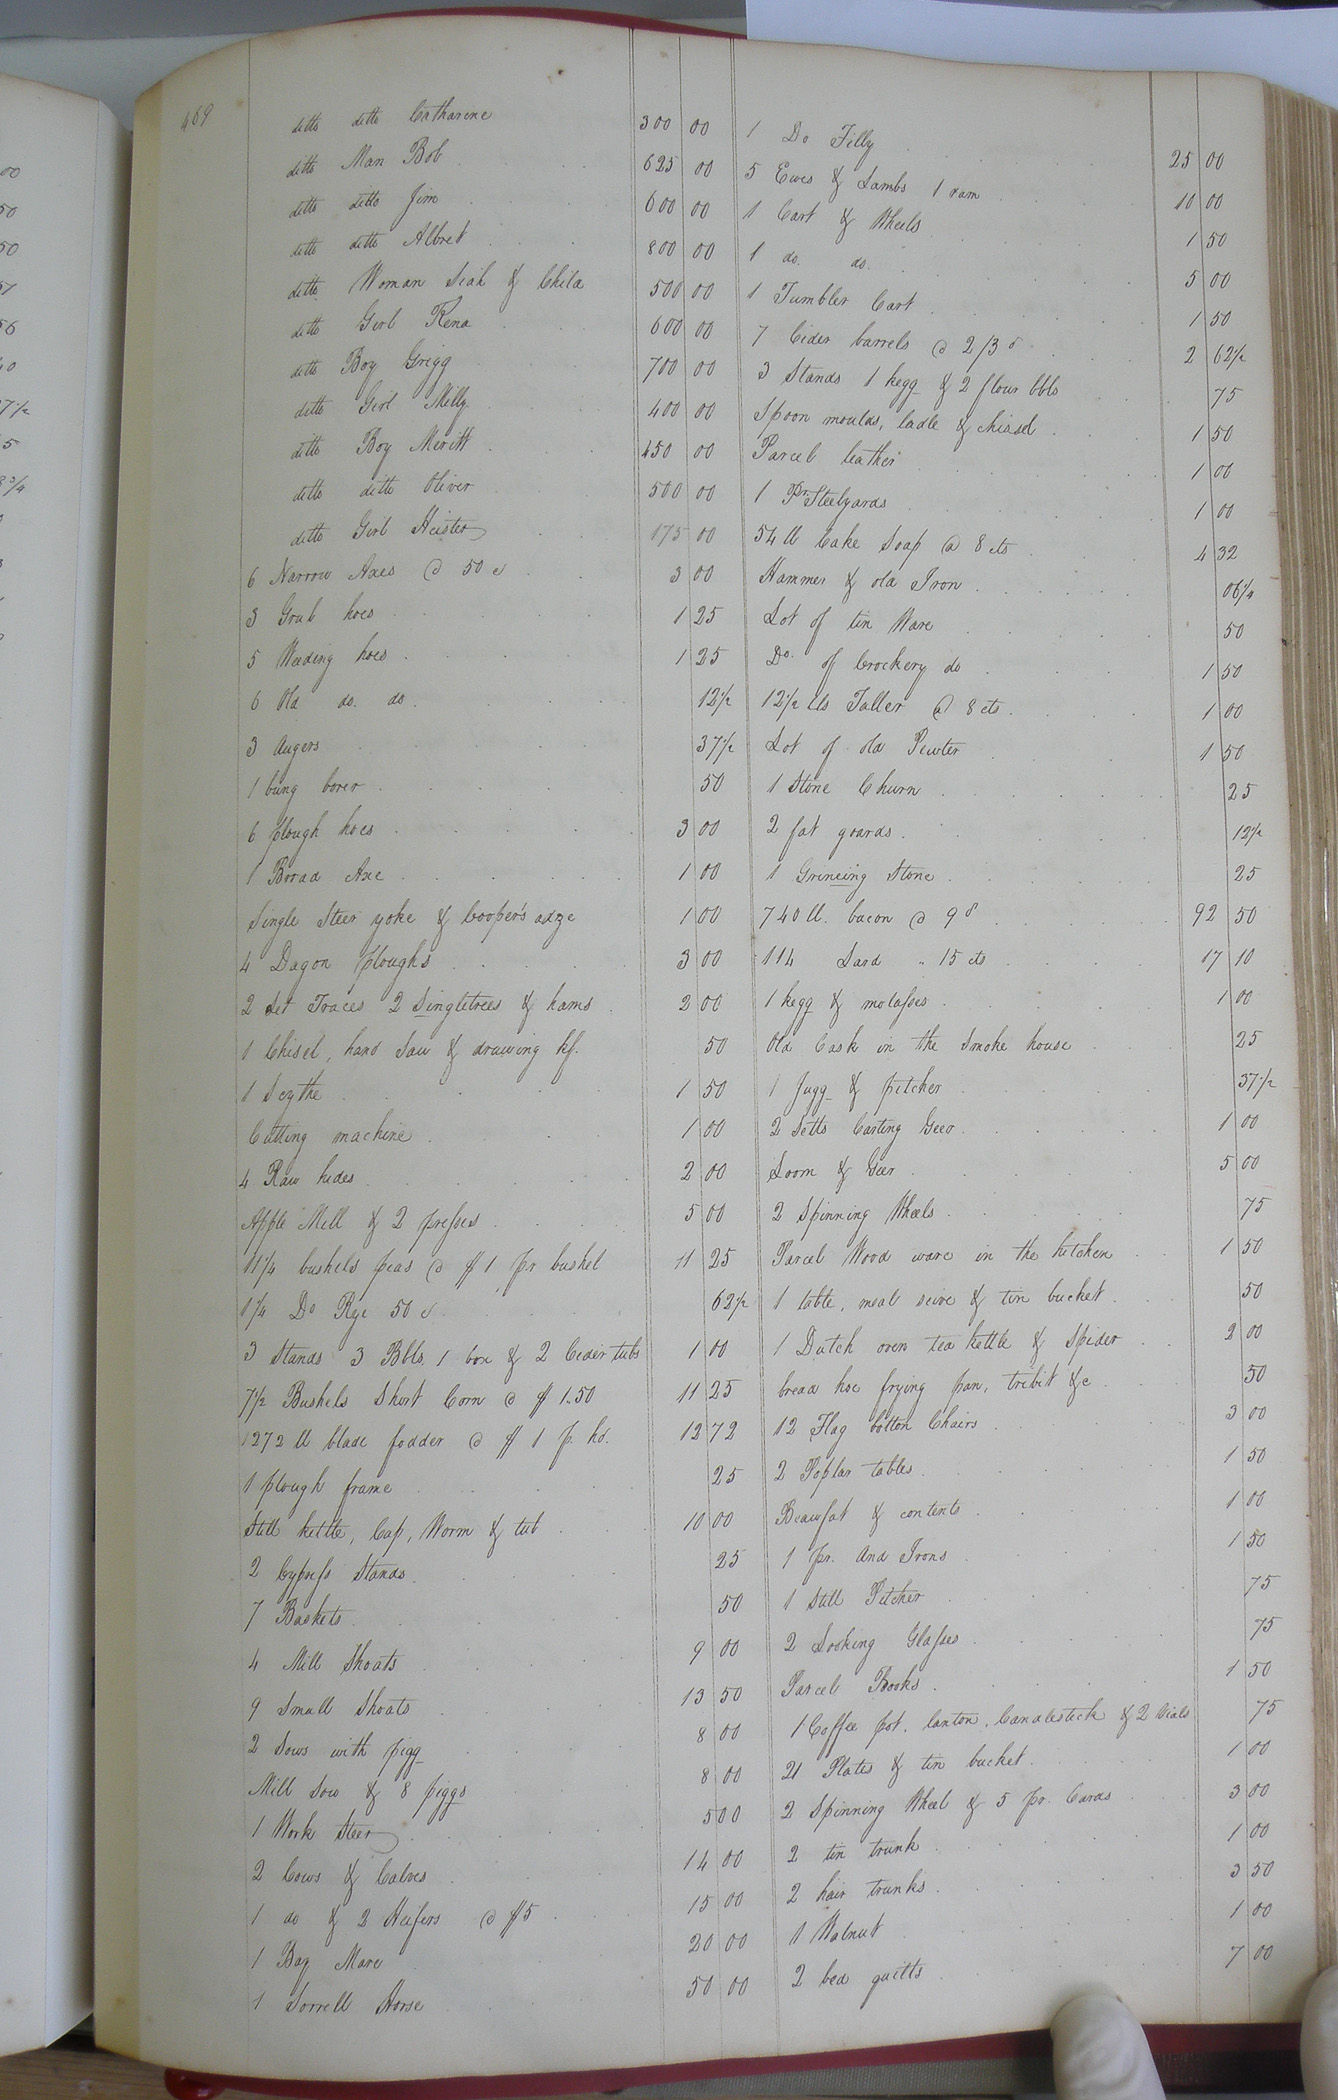 469
ditto ditto Catharine 300 00
ditto Man Bob 625 00
ditto ditto Jim 600 00
ditto ditto Albret 800 00
ditto Woman Siah & Child 500 00
ditto Girl Rena 600 00
ditto Boy Grigg 700 00
ditto Girl Milly 400 00
ditto Boy Meritt 450 00
ditto ditto Oliver 500 00
ditto Girl Heister 175 00
6 Narrow Axes @ 50 c 3 00
3 Grub hoes 1 25
5 Weeding hoes 1 25
6 Old do. do. 12 1/2
3 Augers 37 1/2
1 bung borer 50
6 plough hoes 3 00
1 Borad Axe 1 00
Single Steer yoke & Cooper's adze 1 00
4 Dagon ploughs 3 00
2 Set Traces 2 Singletrees & hams 2 00
1 Chisel, hand Saw & drawing kf. 50
1 Scythe 1 50
Cutting machine 1 00
4 Raw hides 2 00
Apple Mill & 2 presses 5 00
11 1/4 bushels peas @ $1 pr bushel 11 25
1 1/4 Do Rye 50 c 62 1/2
3 Stands 3 Bbls. 1 box & 2 Cider tubs 1 00
7 1/2 Bushels Short Corn @ $1.50 11 25
1272 ll blade fodder @ $1 p. hd. 12 72
1 plough frame 25
Still kettle, Cap, Worm & tub 10 00
2 Cypress Stands 25
7 Baskets 50
4 Mill Shoats 9 00
9 Small Shoats 13 50
2 Sows with pigg 8 00
Mill Sow & 8 piggs 8 00
1 Work Steer 5 00
2 Cows & Calves 14 00
1 do & 2 Heifers @ $5 15 00
1 Bay Mare 20 00
1 Sorrell Horse 50 00
1 Do Filly 25 00
5 Ewes & Lambs 1 ram 10 00
1 Cart & Wheels 1 50
1 do. do. 5 00
1 Tumbler Cart 1 50
7 Cider barrels @ 2/3 2 62 1/2
3 Stands 1 kegg & 2 flour bbls 75
Spoon moulds, ladle & chissel 1 50
Parcel leather 1 00
1 Pr Steelyards 1 00
54 ll Cake Soap @ 8 cts 4 32
Hammer & old Iron 06 1/4
Lot of tin Ware 50
Do. of Crockery do 1 50
12 1/2 lls Taller @ 8 cts 1 00
Lot of old Pewter 1 50
1 Stone Churn 25
2 fat goards 12 1/2
1 Grineing Stone 25
740 ll. bacon @ 9d 92 50
114 Lard " 15 cts 17 10
1 kegg & molasses 1 00
Old Cask in the Smoke house 25
1 Jugg & pitcher 37 1/2
2 Setts Carting Geer 1 00
Loom & Geer 5 00
2 Spinning Wheels 75
Parcel Wood ware in the kitchen 1 50
1 table, meal seive & tin bucket 50
1 Dutch oven tea kettle & Spider 2 00
bread hoe frying pan, tribit &c 50
12 Flag botton Chairs 3 00
2 Poplar tables 1 50
Beawfat & contents 1 00
1 pr. And Irons 1 50
1 Still Pitcher 75
2 Looking Glasses 75
Parcel Books 1 50
1 Coffee pot, lanton, Candlestick & 2 vials 75
21 Plates & tin bucket 1 00
2 Spinning Wheel & 5 pr. Cards 3 00
2 tin trunk 1 00
2 hair trunks 3 50
1 Walnut 1 00
2 bed quilts 7 00